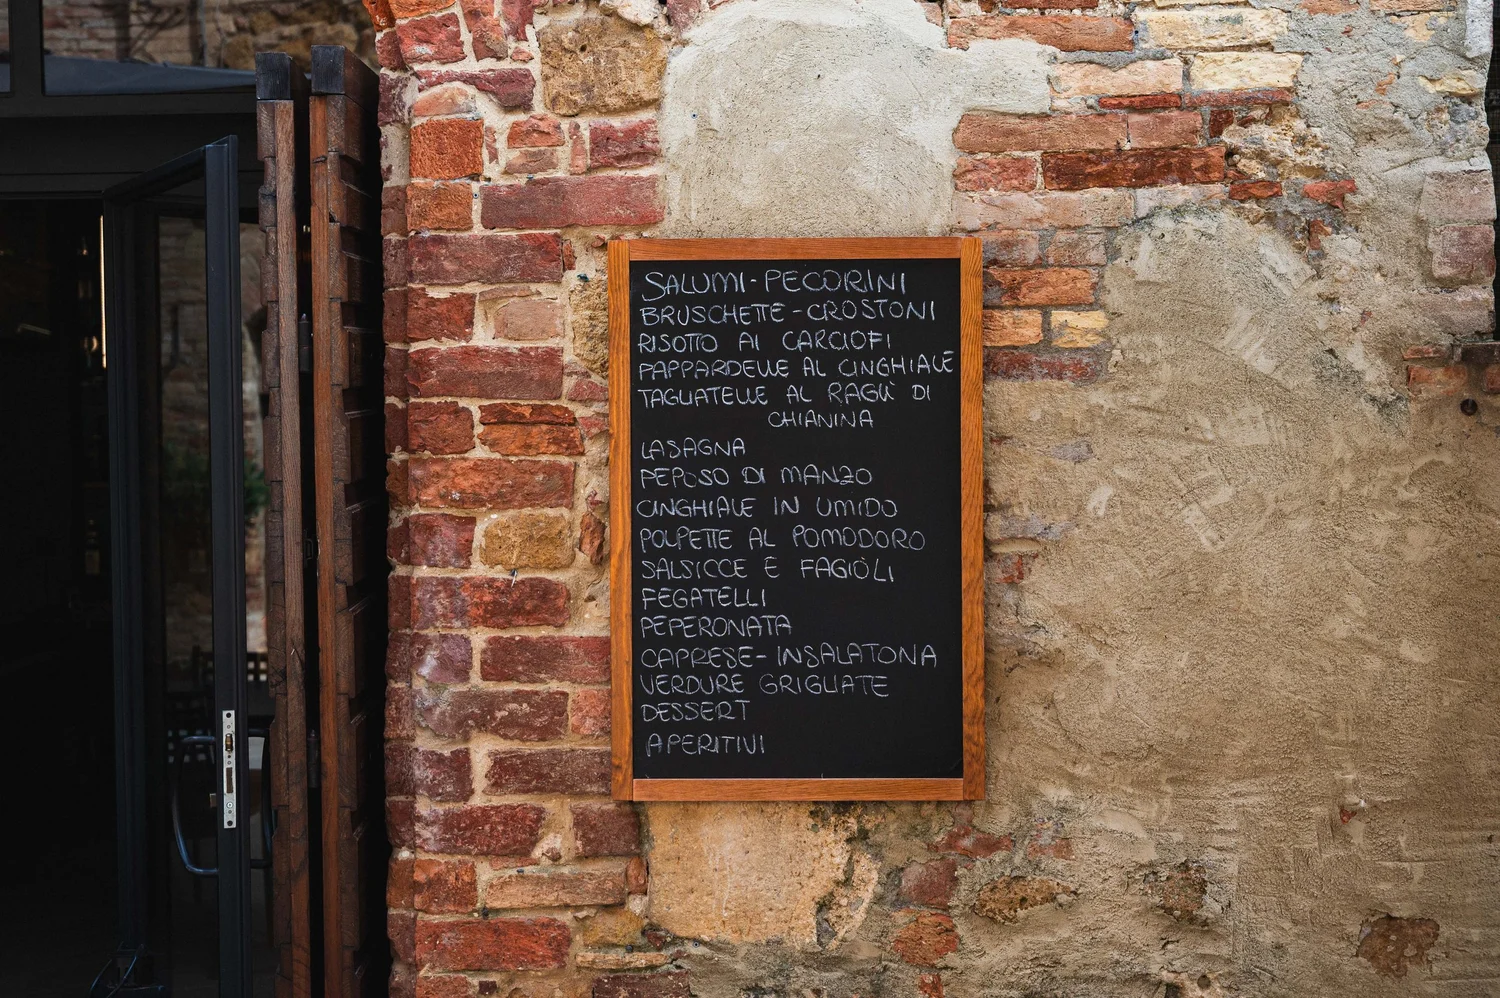 SALUMI-PECORINI
BRUSCHETTE-CROSTONI
RISOTTO AI CARCIOFI
PAPPARDELLE AL CINGHIALE
TAGLIATELLE AL RAGÙ DI
CHIANINA
LASAGNA
PEPOSO DI MANZO
CINGHIALE IN UMIDO
POLPETTE AL POMODORO
SALSICCE E FAGIOLI
FEGATELLI
PEPERONATA
CAPRESE-INSALATONA
VERDURE GRIGLIATE
DESSERT
APERITIVI